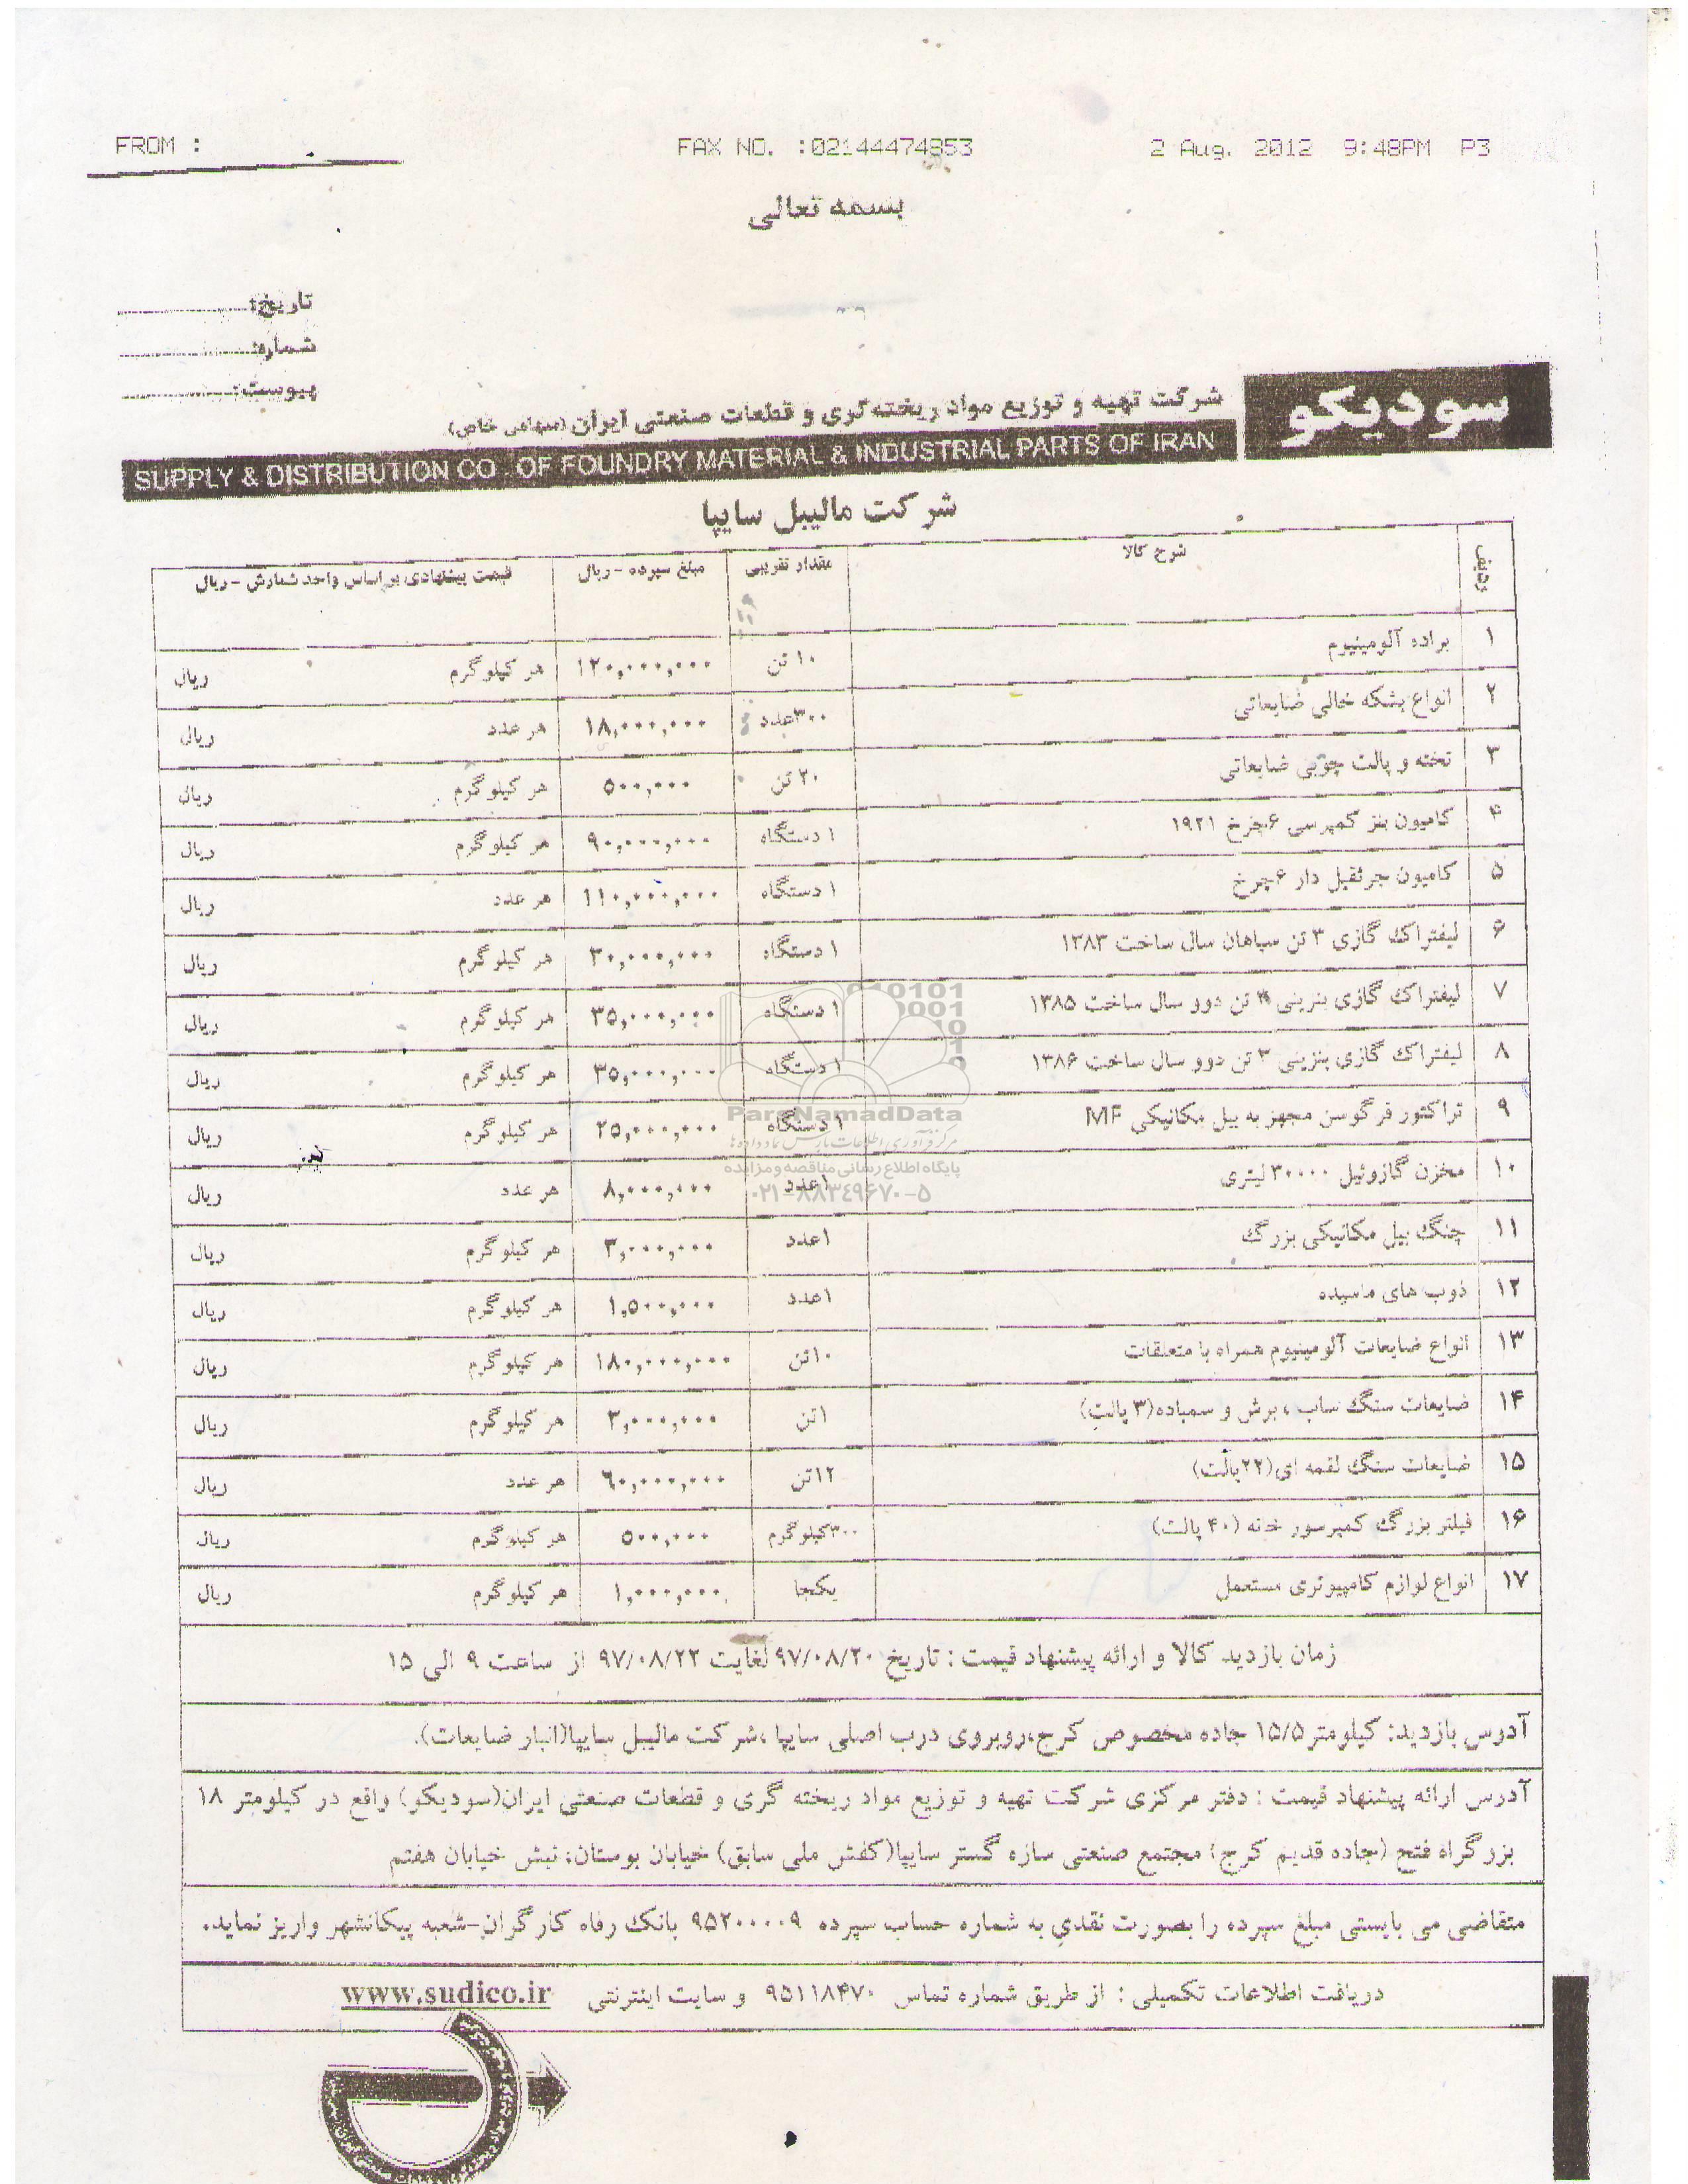 FROM :
FAX NO. :02144474853
2 Aug. 2012 9:48PM P3
بسمه تعالی
تاریخ:
شماره:
پیوست:
سودیکو
شرکت تهیه و توزیع مواد ریخته‌گری و قطعات صنعتی ایران (سهامی خاص)
SUPPLY & DISTRIBUTION CO . OF FOUNDRY MATERIAL & INDUSTRIAL PARTS OF IRAN
شرکت مالیبل سایپا
ردیف شرح کالا مقدار تقریبی مبلغ سپرده - ریال قیمت پیشنهادی بر اساس واحد شمارش - ریال
۱ براده آلومینیوم ۱۰ تن ۱۲۰,۰۰۰,۰۰۰ هر کیلوگرم ریال
۲ انواع بشکه خالی ضایعاتی ۳۰۰عدد ۱۸,۰۰۰,۰۰۰ هر عدد ریال
۳ تخته و پالت چوبی ضایعاتی ۲۰ تن ۵۰۰,۰۰۰ هر کیلوگرم ریال
۴ کامیون بنز کمپرسی ۶چرخ ۱۹۲۱ ۱ دستگاه ۹۰,۰۰۰,۰۰۰ هر کیلوگرم ریال
۵ کامیون جرثقیل دار ۶چرخ ۱ دستگاه ۱۱۰,۰۰۰,۰۰۰ هر عدد ریال
۶ لیفتراک گازی ۳ تن سپاهان سال ساخت ۱۳۸۳ ۱ دستگاه ۳۰,۰۰۰,۰۰۰ هر کیلوگرم ریال
۷ لیفتراک گازی بنزینی ۳ تن دوو سال ساخت ۱۳۸۵ ۱ دستگاه ۳۵,۰۰۰,۰۰۰ هر کیلوگرم ریال
۸ لیفتراک گازی بنزینی ۳ تن دوو سال ساخت ۱۳۸۶ ۱ دستگاه ۳۵,۰۰۰,۰۰۰ هر کیلوگرم ریال
۹ تراکتور فرگوسن مجهز به بیل مکانیکی MF ۱ دستگاه ۲۵,۰۰۰,۰۰۰ هر کیلوگرم ریال
۱۰ مخزن گازوئیل ۳۰۰۰۰ لیتری ۱عدد ۸,۰۰۰,۰۰۰ هر عدد ریال
۱۱ چنگ بیل مکانیکی بزرگ ۱عدد ۳,۰۰۰,۰۰۰ هر کیلوگرم ریال
۱۲ ذوب های ماسیده ۱عدد ۱,۵۰۰,۰۰۰ هر کیلوگرم ریال
۱۳ انواع ضایعات آلومینیوم همراه با متعلقات ۱۰تن ۱۸۰,۰۰۰,۰۰۰ هر کیلوگرم ریال
۱۴ ضایعات سنگ ساب ، برش و سمباده(۳ پالت) ۱تن ۳,۰۰۰,۰۰۰ هر کیلوگرم ریال
۱۵ ضایعات سنگ لقمه ای(۲۲پالت) ۱۲تن ۶۰,۰۰۰,۰۰۰ هر عدد ریال
۱۶ فیلتر بزرگ کمپرسور خانه (۴۰ پالت) ۳۰۰کیلوگرم ۵۰۰,۰۰۰ هر کیلوگرم ریال
۱۷ انواع لوازم کامپیوتری مستعمل یکجا ۱,۰۰۰,۰۰۰ هر کیلوگرم ریال
ParsNamadData
مرکز فرآوری اطلاعات پارس نماد داده ها
پایگاه اطلاع رسانی مناقصه و مزایده
۰۲۱-۸۸۳۴۹۶۷۰-۵
زمان بازدید کالا و ارائه پیشنهاد قیمت : تاریخ ۹۷/۰۸/۲۰ لغایت ۹۷/۰۸/۲۲ از ساعت ۹ الی ۱۵
آدوس بازدید: کیلومتر ۱۵/۵ جاده مخصوص کرج،روبروی درب اصلی سایپا ،شرکت مالیبل سایپا(انبار ضایعات).
آدرس ارائه پیشنهاد قیمت : دفتر مرکزی شرکت تهیه و توزیع مواد ریخته گری و قطعات صنعتی ایران(سودیکو) واقع در کیلومتر ۱۸
بزرگراه فتح (جاده قدیم کرج) مجتمع صنعتی سازه گستر سایپا(کفش ملی سابق) خیابان بوستان، نبش خیابان هفتم
متقاضی می بایستی مبلغ سپرده را بصورت نقدی به شماره حساب سپرده ۹۵۲۰۰۰۰۹ بانک رفاه کارگران-شعبه پیکانشهر واریز نماید.
دریافت اطلاعات تکمیلی : از طریق شماره تماس ۹۵۱۱۸۴۷۰ و سایت اینترنتی www.sudico.ir